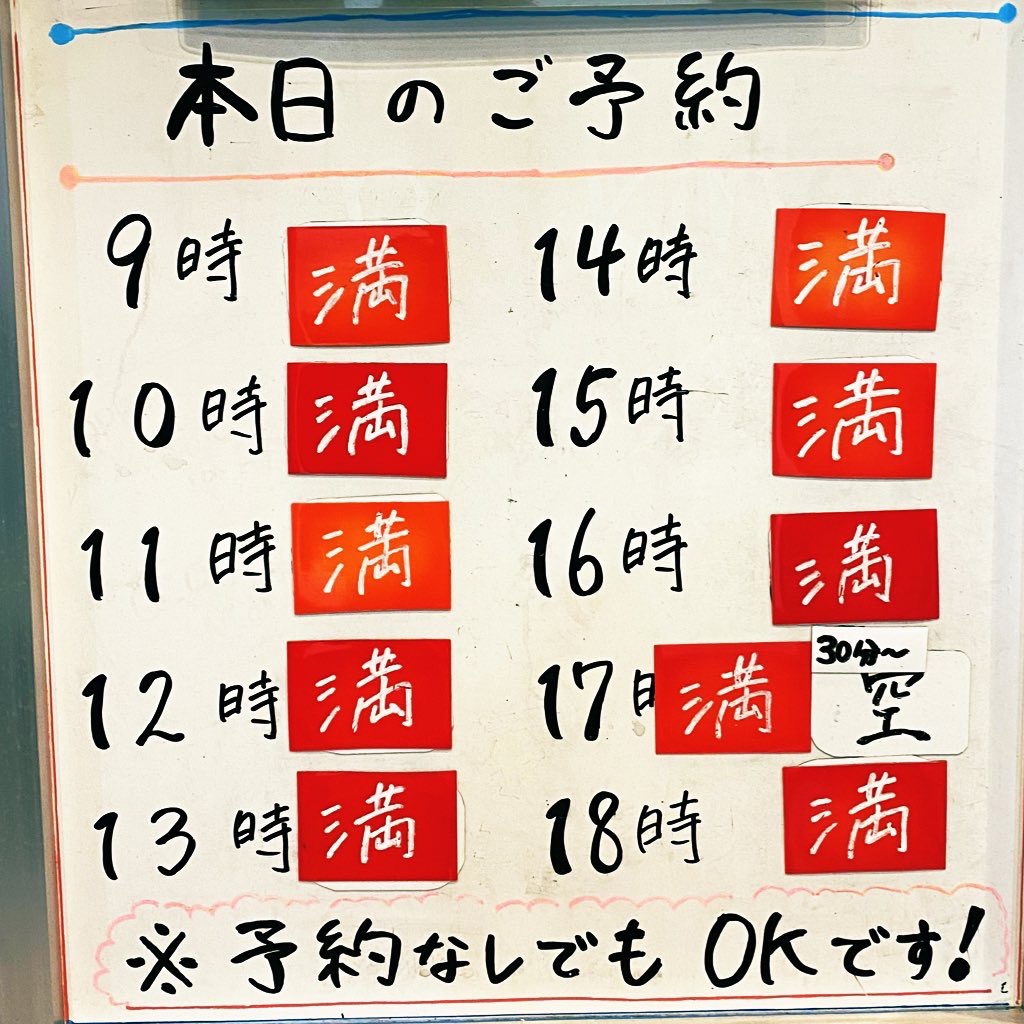 本日のご予約
9時 満
10時 満
11時 満
12時 満
13時 満
14時 満
15時 満
16時 満
17時 満 30分~ 空
18時 満
※予約なしでもOKです!